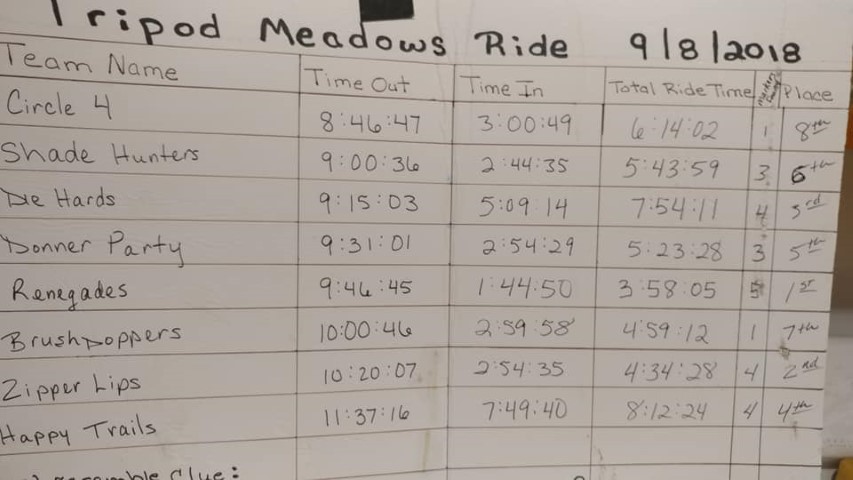 Tripod Meadows Ride 9/8/2018
Team Name Time Out Time In Total Ride Time Place
Circle 4 8:46:47 3:00:49 6:14:02 1 8th
Shade Hunters 9:00:36 2:44:35 5:43:59 3 6th
Die Hards 9:15:03 5:09 14 7:54:11 4 3rd
Donner Party 9:31:01 2:54:29 5:23:28 3 5th
Renegades 9:46:45 1:44:50 3:58:05 5 1st
Brushpoppers 10:00:46 2:59:58 4:59:12 1 7th
Zipper Lips 10:20:07 2:54:35 4:34:28 4 2nd
Happy Trails 11:37:16 7:49:40 8:12:24 4 4th
Clue: